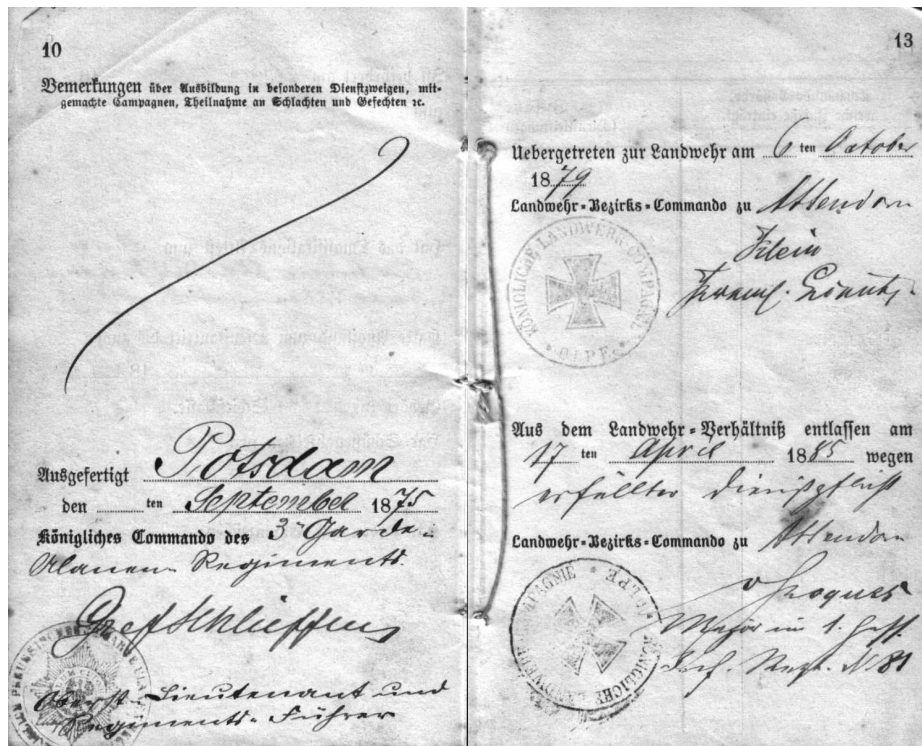 10
Bemerkungen über Ausbildung in besonderen Dienstzweigen, mit-
gemachte Campagnen, Theilnahme an Schlachten und Gefechten ꝛc.
Ausgefertigt Potsdam
den ten September 1875
Königliches Commando des 3ten Garde-
Ulanen-Regiments.
Graf Schlieffen
Oberst-Lieutenant und
Regiments-Führer
13
Uebergetreten zur Landwehr am 6 ten October
1879
Landwehr-Bezirks-Commando zu Attendorn
Klein
Lieut.
KÖNIGLICHE LANDWEHR COMPAGNIE
* OLPE *
Aus dem Landwehr-Verhältniß entlassen am
17 ten April 1885 wegen
erfüllter Dienstpflicht
Landwehr-Bezirks-Commando zu Attendorn
Major im 1. Hess.
Inf. Regt. No 81
KÖNIGLICHE LANDWEHR COMPAGNIE
* OLPE *